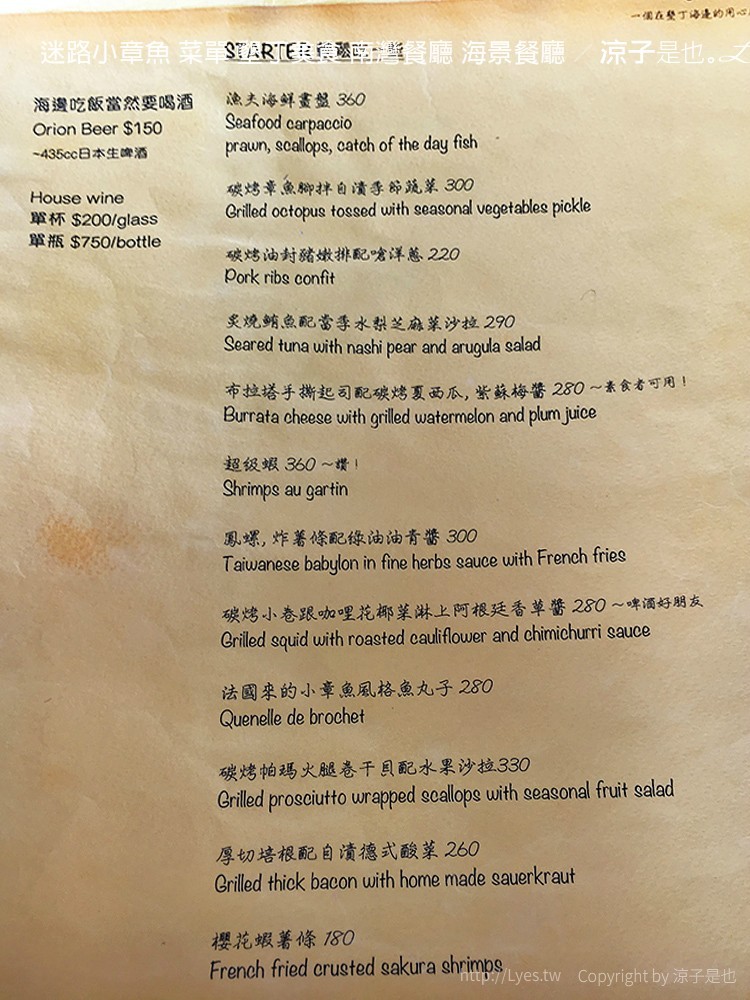 一個在墾丁海邊的用心
迷路小章魚 菜單 墾丁美食 南灣餐廳 海景餐廳 / 涼子是也。
STARTER
海邊吃飯當然要喝酒
Orion Beer $150
~435cc日本生啤酒
House wine
單杯 $200/glass
單瓶 $750/bottle
漁夫海鮮畫盤 360
Seafood carpaccio
prawn, scallops, catch of the day fish
碳烤章魚腳拌自漬季節蔬菜 300
Grilled octopus tossed with seasonal vegetables pickle
碳烤油封豬嫩排配嗆洋蔥 220
Pork ribs confit
炙燒鮪魚配當季水梨芝麻菜沙拉 290
Seared tuna with nashi pear and arugula salad
布拉塔手撕起司配碳烤夏西瓜, 紫蘇梅醬 280 ~素食者可用!
Burrata cheese with grilled watermelon and plum juice
超级蝦 360 ~讚!
Shrimps au gartin
鳳螺, 炸薯條配綠油油青醬 300
Taiwanese babylon in fine herbs sauce with French fries
碳烤小卷跟咖哩花椰菜淋上阿根廷香草醬 280 ~啤酒好朋友
Grilled squid with roasted cauliflower and chimichurri sauce
法國來的小章魚風格魚丸子 280
Quenelle de brochet
碳烤帕瑪火腿卷干貝配水果沙拉330
Grilled prosciutto wrapped scallops with seasonal fruit salad
厚切培根配自漬德式酸菜 260
Grilled thick bacon with home made sauerkraut
櫻花蝦薯條 180
French fried crusted sakura shrimps
http://Lyes.tw Copyright by 涼子是也